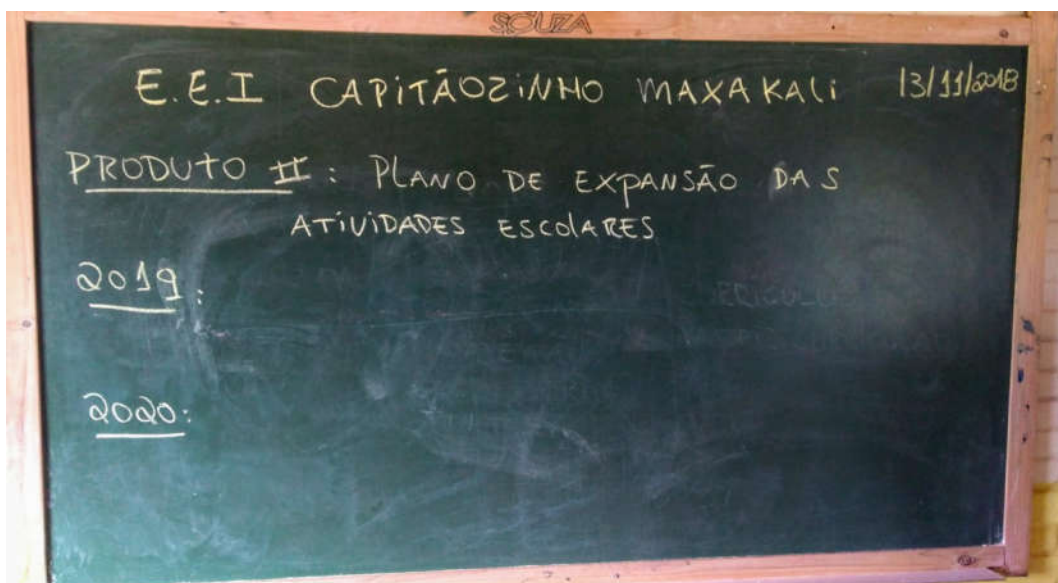 SOUZA
E.E.I CAPITÃOZINHO MAXAKALI 13/11/2018
PRODUTO II: PLANO DE EXPANSÃO DAS
ATIVIDADES ESCOLARES
2019:
2020: